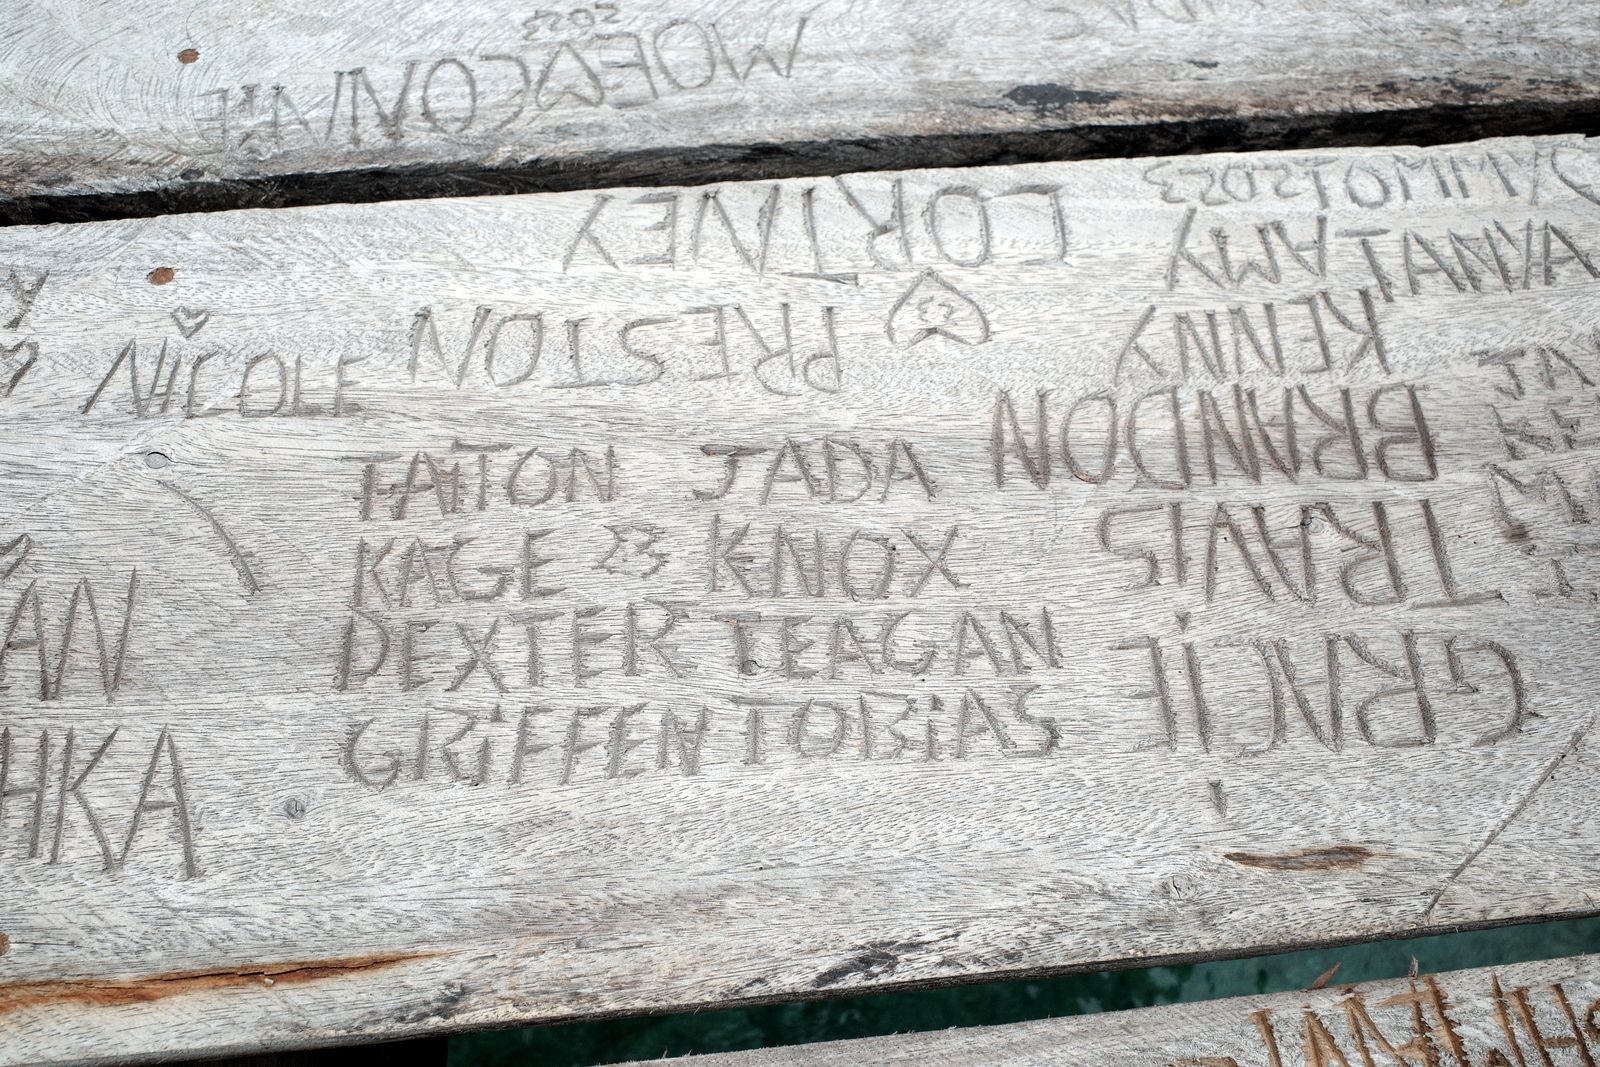 MOE & CONNIE
2023
JAMMO 12023
CORTNEY
AMY
KENNY
23
PRESTON
NICOLE
BRANDON
TRAVIS
GRACIE
EATTON JADA
KAGE 23 KNOX
DEXTER TEAGAN
GRIFFEN TOBIAS
AN
HKA